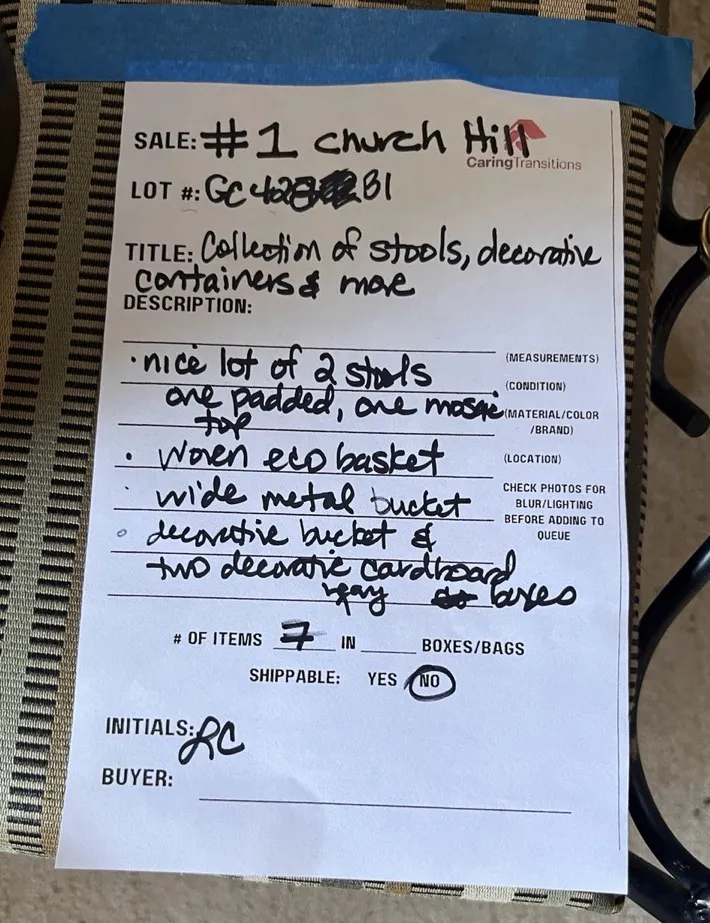 SALE: #1 Church Hill
CaringTransitions
LOT #: GC42 B1
TITLE: Collection of stools, decorative
containers & more
DESCRIPTION:
(MEASUREMENTS)
• nice lot of 2 stools
(CONDITION)
one padded, one mosaic
(MATERIAL/COLOR
/BRAND)
top
• Woven eco basket
(LOCATION)
• wide metal bucket
CHECK PHOTOS FOR
BLUR/LIGHTING
BEFORE ADDING TO
QUEUE
• decorative bucket &
two decorative cardboard
boxes
# OF ITEMS 7 IN ____ BOXES/BAGS
SHIPPABLE: YES NO
INITIALS: RC
BUYER: